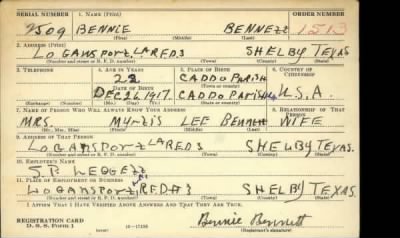 SERIAL NUMBER 1. NAME (Print) ORDER NUMBER
9509 BENNIE BENNETT 1513
(First) (Middle) (Last)
2. ADDRESS (Print)
LOGANSPORT LA RED 3 SHELBY TEXAS
(Number and street or R. F. D. number) (Town) (County) (State)
3. TELEPHONE 4. AGE IN YEARS 5. PLACE OF BIRTH 6. COUNTRY OF CITIZENSHIP
22 CADDO PARISH
DATE OF BIRTH (Town or county)
DEC 26 1917. CADDO PARISH U.S.A
(Exchange) (Number) (Mo.) (Day) (Yr.) (State or country)
7. NAME OF PERSON WHO WILL ALWAYS KNOW YOUR ADDRESS 8. RELATIONSHIP OF THAT PERSON
MRS. LEE BENNETT WIFE
(Mr., Mrs., Miss) (First) (Middle) (Last)
9. ADDRESS OF THAT PERSON
LOGANSPORT LA RED 3 SHELBY TEXAS.
(Number and street or R. F. D. number) (Town) (County) (State)
10. EMPLOYER'S NAME
S.P. LEGGETT
11. PLACE OF EMPLOYMENT OR BUSINESS
LOGANSPORT LA RED 3 SHELBY TEXAS.
(Number and street or R. F. D. number) (Town) (County) (State)
I AFFIRM THAT I HAVE VERIFIED ABOVE ANSWERS AND THAT THEY ARE TRUE.
REGISTRATION CARD
D. S. S. Form 1 16—17105 Bennie Bennett
(Registrant's signature)